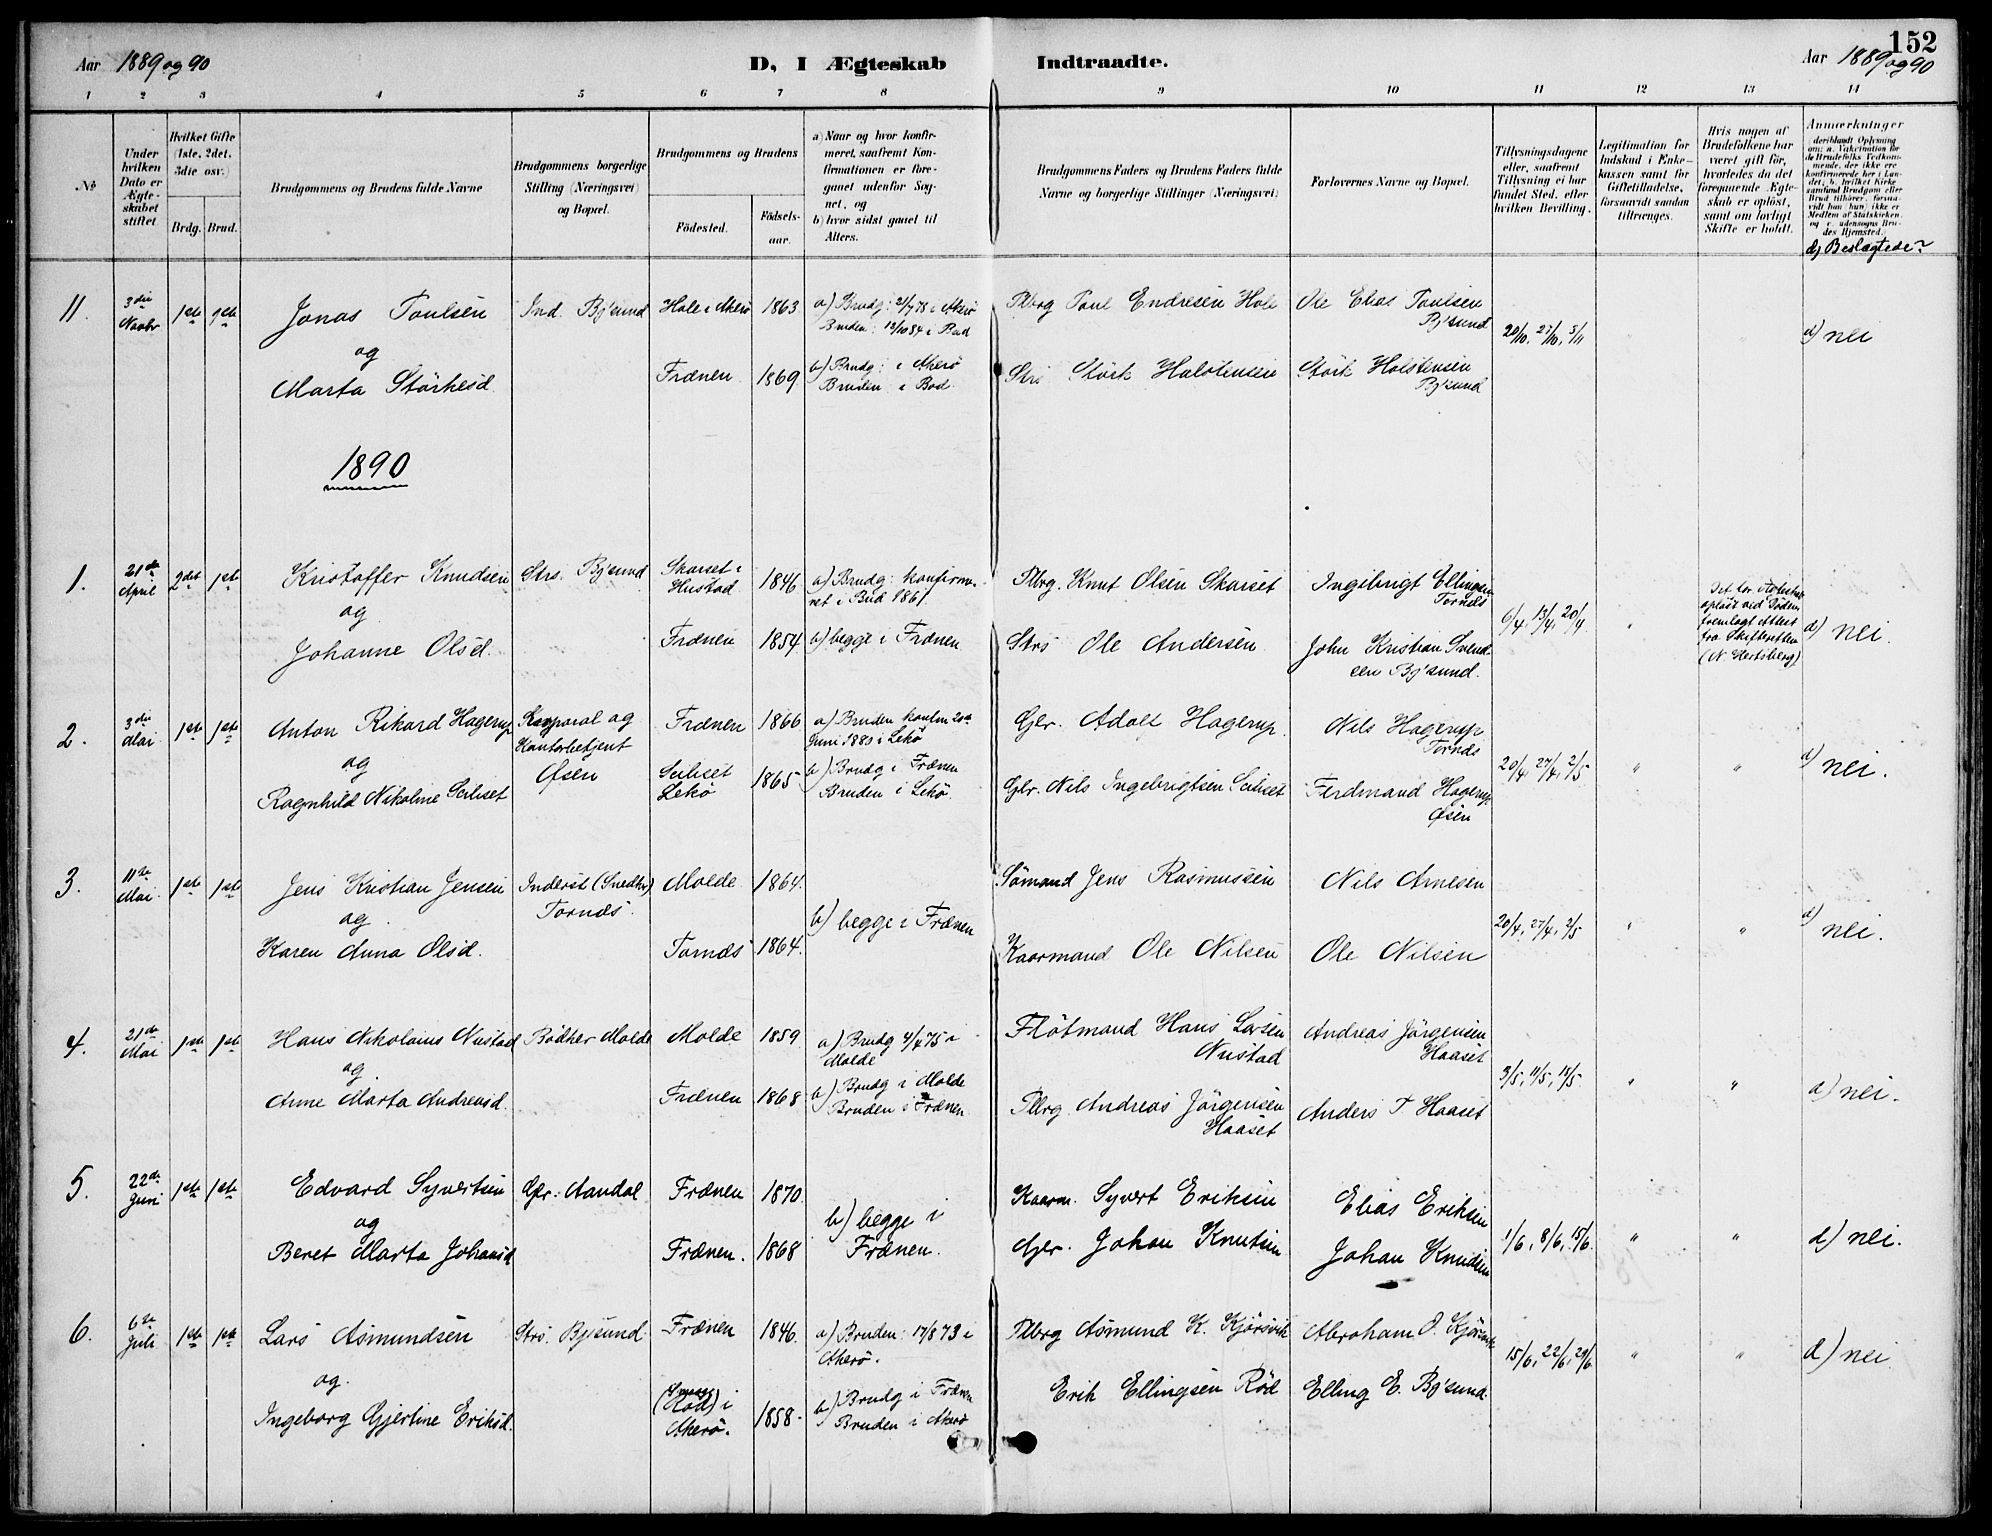 152
Aar 1889 og 90
D, I Ægteskab Indtraadte.
Aar 1889 og 90
1 2 3 4 5 6 7 8 9 10 11 12 13 14
No
Under hvilken Dato er Ægteskabet stiftet
Hvilket Gifte (1ste, 2det, 3die osv.)
Brdg. Brud.
Brudgommens og Brudens fulde Navne
Brudgommens borgerlige Stilling (Næringsvei) og Bopæl.
Brudgommens og Brudens
Födested.
Födselsaar.
a) Naar og hvor konfirmeret, saafremt Konfirmationen er foregaaet udenfor Sognet, og
b) hvor sidst gaaet til Alters.
Brudgommens Faders og Brudens Faders fulde Navne og borgerlige Stillinger (Næringsvei)
Forlovernes Navne og Bopæl.
Tillysningsdagene eller, saafremt Tillysning ei har fundet Sted, efter hvilken Bevilling.
Legitimation for Indskud i Enkekassen samt for Giftetilladelse, forsaavidt saadan tiltrænges.
Hvis nogen af Brudefolkene har været gift för, hvorledes da det foregaaende Ægteskab er oplöst, samt om lovligt Skifte er holdt.
Anmærkninger
(deriblandt Oplysning om: a. Vakcination for de Brudefolks Vedkommende, der ikke ere konfirmerede her i Landet; b. hvilket Kirkesamfund Brudgom eller Brud tilhörer, forsaavidt han, hun ikke er Medlem af Statskirken, og c. udensogns Brudes Hjemsted.
d) Beslægtede?
11. 3die Novbr 1ste 1ste Jonas Poulsen Ind. Bj'sund Hole i Akerö 1863 a) Brudg: 21/7 78 i Akerö
Bruden: 12/10 84 i Bud
Plbrg Poul Endresen Hole Ole Elias Poulsen
Bj'sund
20/10, 27/10, 3/11
d) nei
og
Marta Störkesd. Frænen 1869 b) Brudg: i Akerö
Bruden i Bod.
Strs Störk Halstensen Störk Halstensen
Bj'sund
1890
1. 21de April 2det 1ste Kristoffer Knudsen Strs. Bj'sund Skarset i
Hustad 1846 a) Brudg: konfirmeret i Bud 1861.
Plbrg. Knut Olsen Skarset Ingebrigt Ellingsen
Tornes
6/4, 13/4, 20/4
Det før. Ægteskab
opløst ved Döden,
fremlagt Attest
fra Skifteretten
(N. Hertsberg)
d) nei.
og
Johanne Olsd. Frænen 1854 b) begge i Frænen
Strs Ole Andersen John Kristian Svendsen Bj'sund.
2. 3die Mai 1ste 1ste Anton Rikard Hagerup Korporal og
Kontorbetjent
Øsen
Frænen 1866 a) Bruden konfm 20de
Juni 1880 i Lekö
Gbr. Adolf Hagerup. Nils Hagerup
Tornes
20/4, 27/4, 2/5 " "
d) nei.
og
Ragnhild Nikoline Seliset Seliset
Lekö 1865 b) Brudg i Frænen
Bruden i Lekö
Gbr. Nils Ingebrigtsen Seliset Ferdinand Hagerup
Øsen
3. 11te Mai 1ste 1ste Jens Kristian Jensen Inderst (Snedker)
Tornes.
Molde 1864. Sömand Jens Rasmussen Nils Arnesen
b) begge i Frænen
20/4, 27/4, 2/5 " "
d) nei.
og
Karen Anna Olsd. Tornes 1864. Kaarmand Ole Nilsen Ole Nilsen
4. 21de Mai 1ste 1ste Hans Nikolaius Nustad Bödker Molde Molde 1859 a) Brudg 4/4 75 i
Molde
Flötmand Hans Larsen
Nustad
Andreas Jörgensen
Haaset
3/5, 11/5, 18/5 " "
d) nei.
og
Anne Marta Andreasd. Frænen 1868 b) Brudg i Molde
Bruden i Frænen
Plbrg Andreas Jörgensen
Haaset
Anders T Haaset
5. 22de Juni 1ste 1ste Edvard Syvertsen Gbr. Aandal Frænen 1870. b) begge i
Frænen.
Kaarm. Syvert Eriksen Elias Eriksen
1/6, 8/6, 15/6. " "
d) nei.
og
Beret Marta Johansd. Frænen. 1868 Gbr. Johan Knutsen Johan Knudsen
6. 6te Juli 1ste 1ste Lars Asmundsen Strs. Bj'sund Frænen 1846. a) Bruden: 17/8 73 i
Akerö.
Plbrg Asmund K. Kjörsvik Abraham O. Kjörsvik
15/6, 22/6, 29/6 " "
d) nei
og.
Ingeborg Gjertine Eriksd. (Röd) i
Akerö. 1858. b) Brudg i Frænen
Bruden i Akerö
Erik Ellingsen Röd Elling E. Bj'sund.